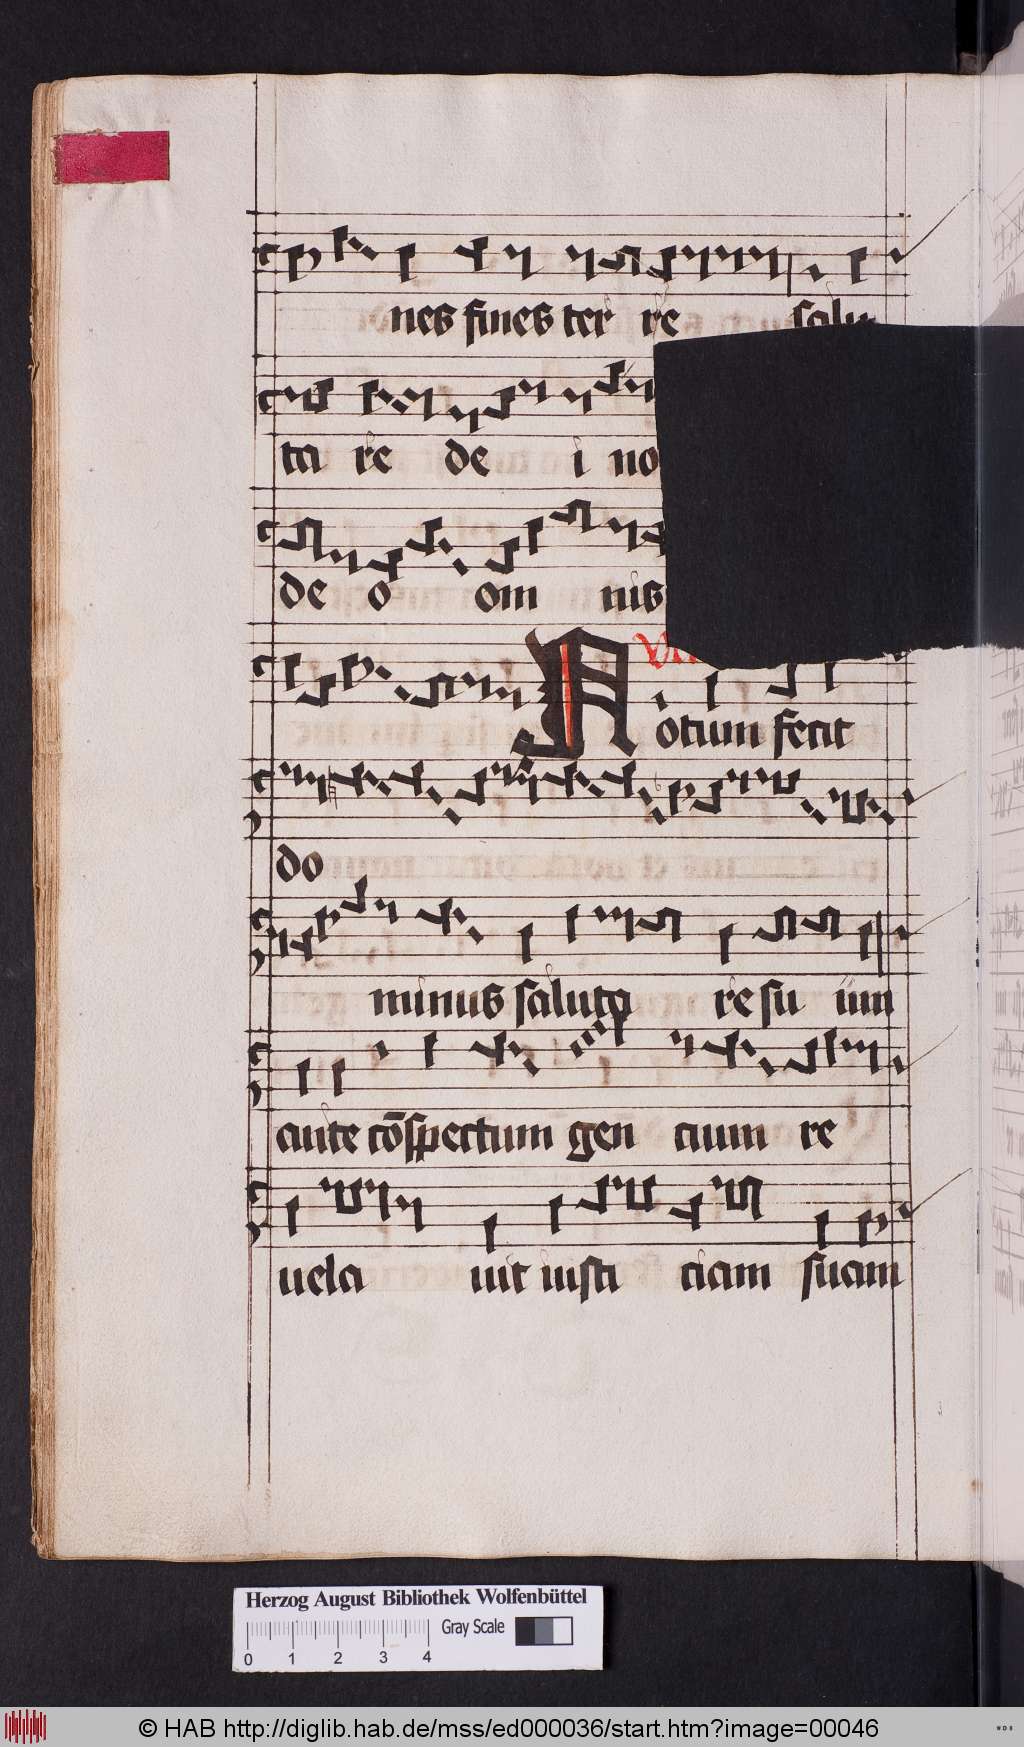 nes fines ter re
ta re de i no
de o om nis
Notum fecit
do
minus saluta re su um
ante cōspectum gen tium re
uela uit iusti ciam suam
Herzog August Bibliothek Wolfenbüttel
Gray Scale
0 1 2 3 4
© HAB http://diglib.hab.de/mss/ed000036/start.htm?image=00046